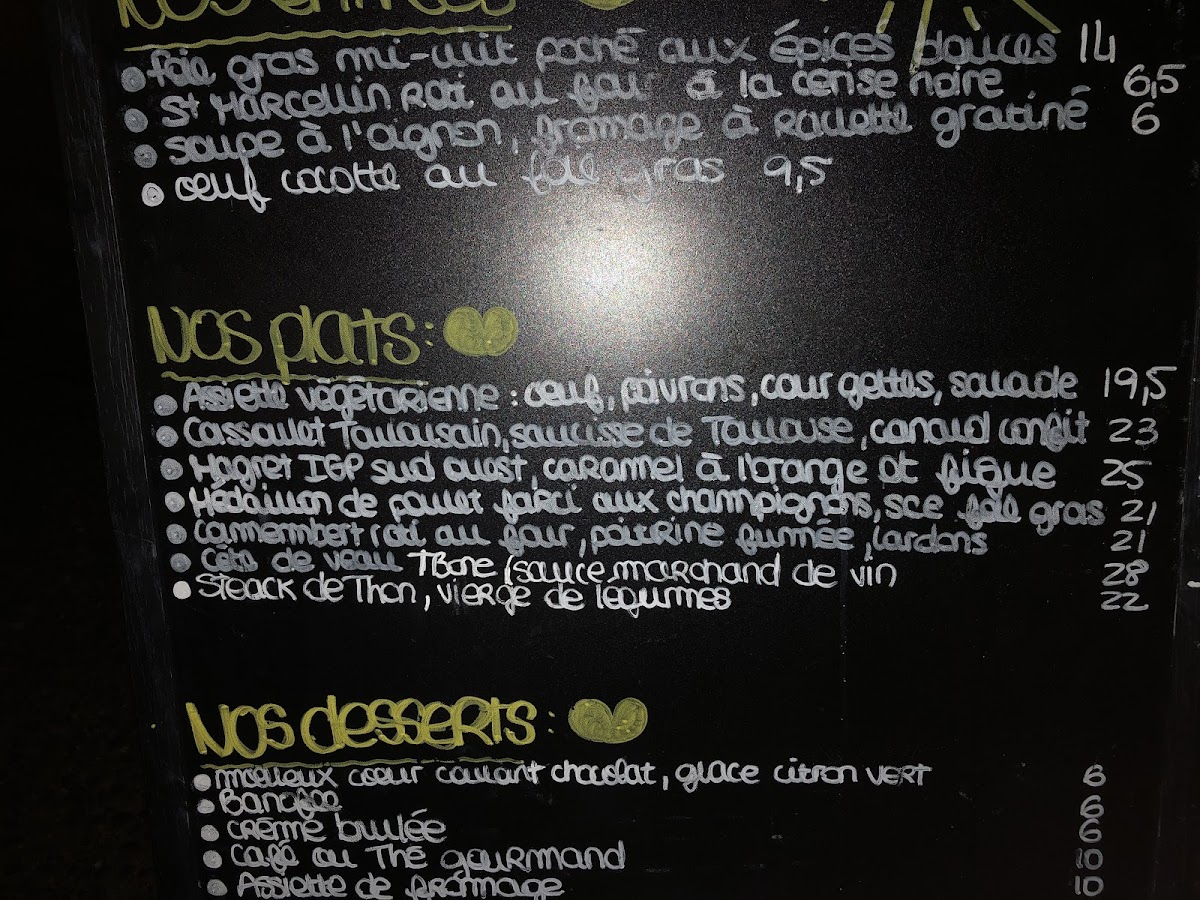 Nos entrées
foie gras mi-cuit poché aux épices douces 14
St Marcellin Roti au four à la cerise noire 6,5
soupe à l'oignon, fromage à raclette gratiné 6
œuf cocotte au foie gras 9,5
Nos plats:
Assiette végétarienne : œuf, poivrons, courgettes, salade 19,5
Cassoulet Toulousain, saucisse de Toulouse, canard confit 23
Magret IGP sud ouest, caramel à l'orange et figue 25
Médaillon de poulet farci aux champignons, sce foie gras 21
Cammembert roti au four, poitrine fumée, lardons 21
Côte de veau TBone (sauce marchand de vin 28
Steack de Thon, vierge de legumes 22
Nos desserts:
moelleux cœur coulant chocolat, glace citron vert 6
Banoffee 6
crème brulée 6
café ou Thé gourmand 10
Assiette de fromage 10